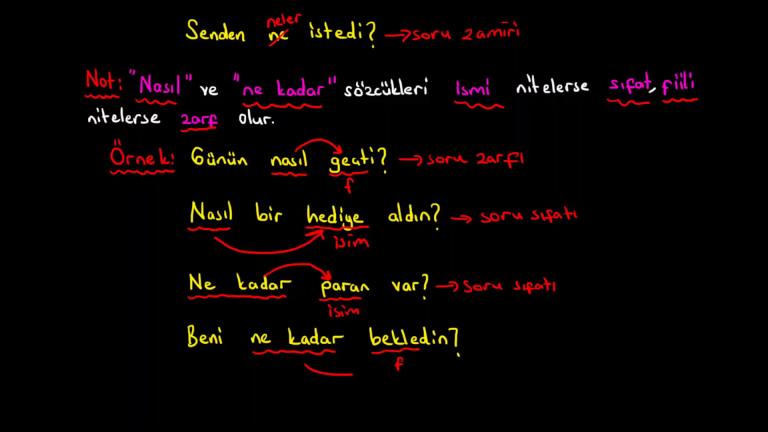 neler
Senden ne istedi? → soru zamiri
Not: "Nasıl" ve "ne kadar" sözcükleri ismi nitelerse sıfat, fiili
nitelerse zarf olur.
Örnek: Günün nasıl geçti? → soru zarfı
f
Nasıl bir hediye aldın? → soru sıfatı
isim
Ne kadar paran var? → soru sıfatı
isim
Beni ne kadar bekledin?
f